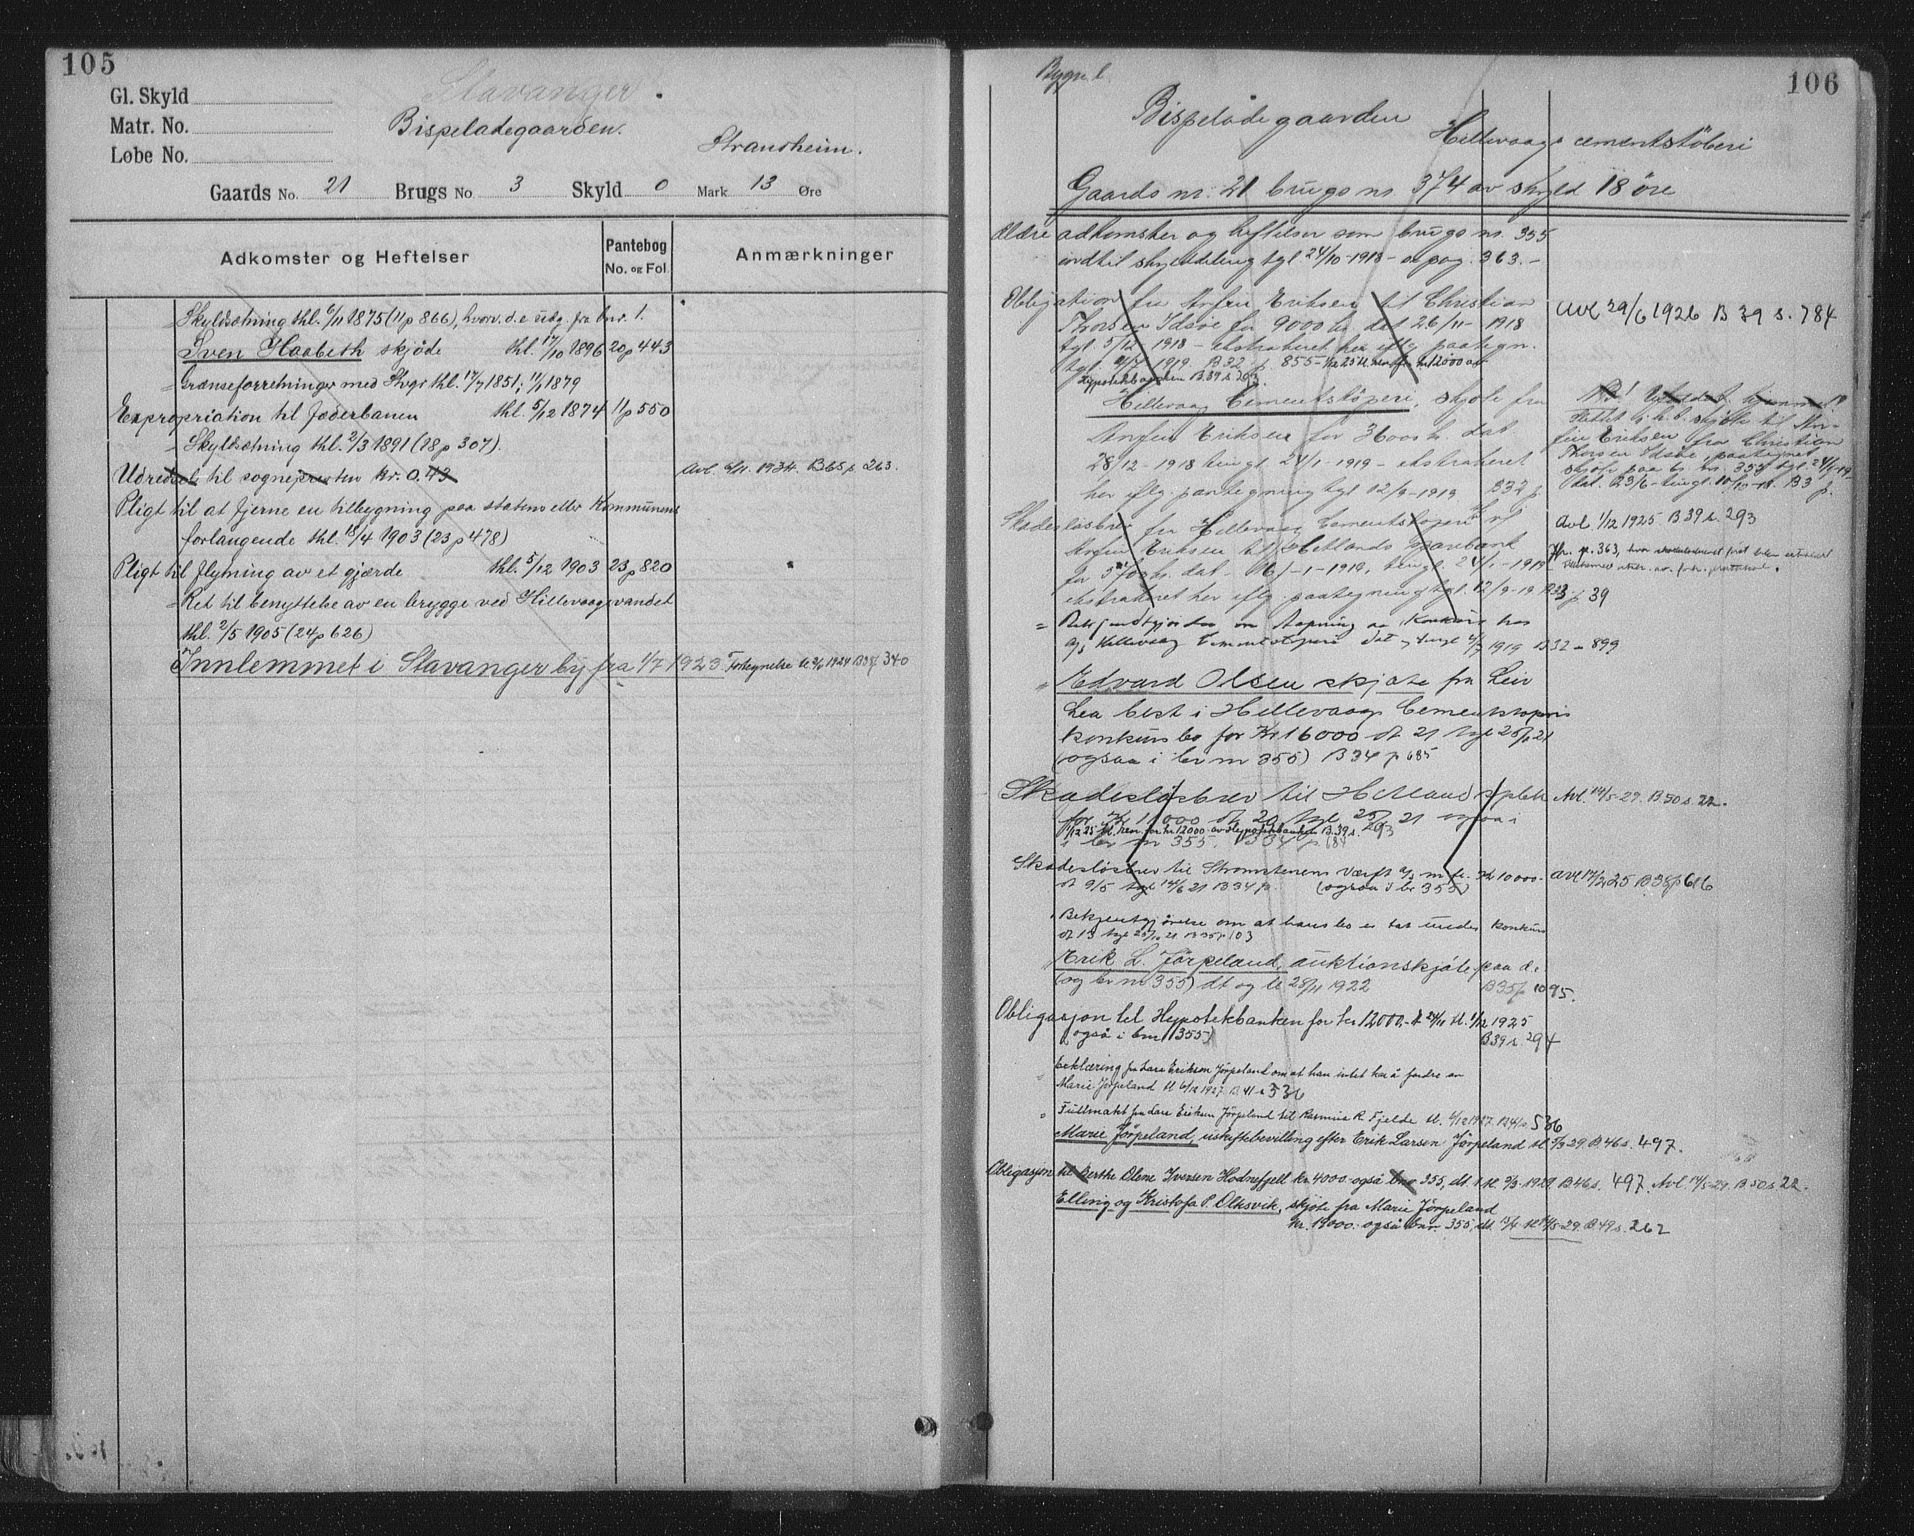 105
Stavanger.
Gl. Skyld
Matr. No.
Løbe No.
Bispeladegaarden.
Strandheim.
Gaards No. 21 Brugs No. 3 Skyld 0 Mark 13 Øre
Adkomster og Heftelser
Pantebog No. og Fol.
Anmærkninger
" Skyldsætning thl. 6/11 1875 (11 p 866), hvorv. d. e. udg. fra bnr. 1.
Sven Haabeth skjøde thl. 17/10 1896 20 p 443
" Grænseforretninger med thl. 17/7 1851; 11/1 1879
Expropriation til Jæderbanen thl. 5/12 1874 11 p 550
" Skyldsætning thl. 2/3 1891 (18 p 307).
Udredsel til sognepresten kr. 0.43 Avl. 6/11. 1934. B65 p 263.
Pligt til at fjerne en tilbygning paa statens eller Kommunens
forlangende thl. 18/4 1903 (23 p 478)
Pligt til flytning av et gjærde thl. 5/12 1903 23 p 820
" Ret til benyttelse av en brygge ved Hillevaagsvandet
thl. 2/5 1905 (24 p 626)
Innlemmet i Stavanger by fra 1/7 1923 1924 340
106
Bispeladegaarden
Hillevaags cementstøberi
Gaards nr. 21 brugs nr. 374 av skyld 18 øre
Ældre adkomster og heftelser som brugs nr. 355
indtil skylddeling tgl. 24/10-1918 - pag. 363.-
Obligation fra Arfin Eriksen til Christian
Thorsen Idsøe for 9000 kr. dat 26/11- 1918
tgl 5/12 1918 - ekstraheret her eflg paategn.
1919 B32 p. 855
Hypotekbanken B39 s. 293.
Avl 29/6 1926 B 39 s. 784
Hillevaag Cementstøperi, skjøte fra
Arfin Eriksen for dat.
28/12-1918 tingl 24/1-1919 - ekstraheret
her eflg. paategning tgl 12/9-1919 B32 p
fin Eriksen fra Christian
Thorsen Idsøe, paategnet
Skadesløsbrev fra Hillevaag Cementstøperi v/
Arfin Eriksen til Hetlands Sparebank
ekstraheret her eflg. paategning tgl. 12/9-19 B33 p 39
Avl. 1/12 1925 B39 s. 293
Jfr. p. 363,
" Bekjendtgjørelse om aapning av Konkurs hos
A/s Hillevaag Cementstøperi dat 1919 B32 - 899
" Edvard Olsen skjøte fra Leiv
Lea best i Hillevaags Cementstøperis
konkursbo for Kr 16000 dt 21 tgl 21
(ogsaa i br nr 355) B34 p 685
Skadesløsbrev til Hetland spbk
for Kr 11000 dt 20 tgl 25/ 21 ogsaa i
1/12 25 for kr 12000 av Hypotekbanken B39 s. 293
i br nr 355. B34 p.
Avl. 14/5-29. B50 s. 22.
Skadesløsbrev til Strømstenens Værft A/s Kr 10000.-
dt 9/5 tgl 14/6 21 B34 p. (ogsaa i br 355)
Avl 17/2 25 B38 p 616
" Bekjentgjørelse om at hans bo er tat under konkurs
dt 15 tgl 25/10 21 B35 p 103
Erik L. Jørpeland, auktionsskjøte paa d.e
(og br nr 355) dt og tl 28/11 1922 B35 p 1095.
Obligasjon til Hypotekbanken for kr 12000.- dt 24/11 tl. 1/12 1925
også i bnr 355) B39 s. 294
" Erklæring fra Lars Eriksen Jørpeland om at han intet har å fordre av
Marie Jørpeland tl 6/12 1927. B 41 s 536
" Fullmakt fra Lars Eriksen Jørpeland til Rasmus R. Fjelde tl. 6/12 1927. B41 s 536
Marie Jørpeland, uskiftebevilling efter Erik Larsen Jørpeland tl. 5/3-29. B46 s. 497.
Obligasjon til Berthe Olene Iversen Hodnefjell kr. 4000.- også bnr 355, dt. 1929 B46 s. 497. Avl 14/5-29. B50 s 22.
Elling og Kristofa P. Olksvik, skjøte fra Marie Jørpeland
kr. 19000.- også bnr. 355, dt. 29. B49 s. 262